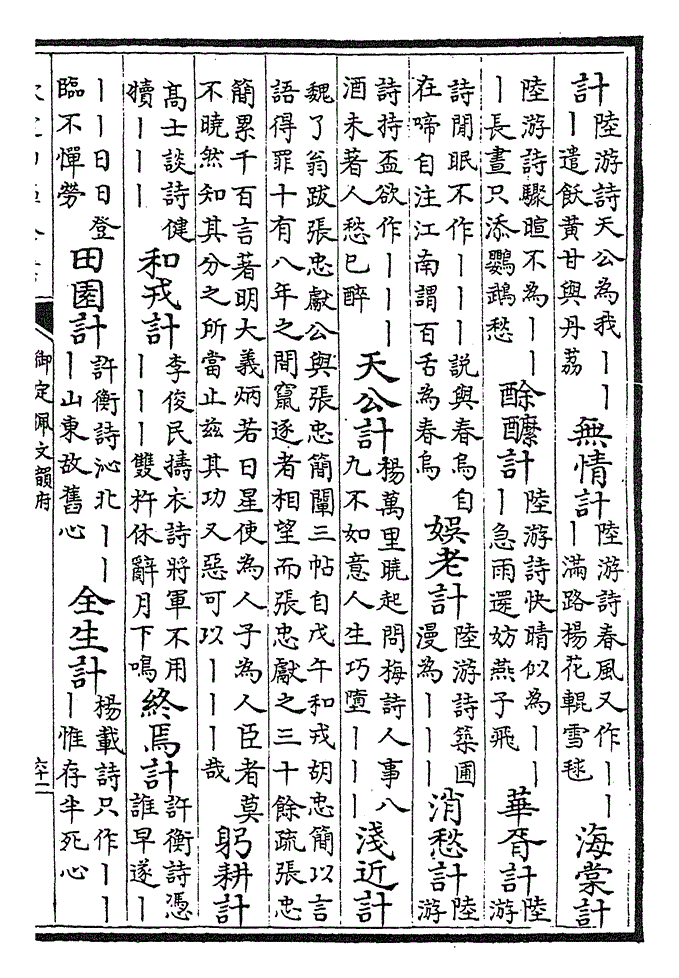 計
陸游詩天公為我丨丨
丨遣飫黃甘與丹荔
無情計
陸游詩春風又作丨丨
丨滿路楊花輥雪毬
海棠計
陸游詩驟暄不為丨丨
丨長晝只添鸚鵡愁
酴醾計
陸游詩快晴似為丨丨
丨急雨還妨燕子飛
華胥計
陸
游
詩閒眠不作丨丨丨說與春鳥自
在啼自注江南謂百舌為春鳥
娛老計
陸游詩築圃
漫為丨丨丨
消愁計
陸
游
詩持盃欲作丨丨丨
酒未著人愁已醉
天公計
楊萬里曉起問梅詩人事八
九不如意人生巧墮丨丨丨
淺近計
魏了翁跋張忠獻公與張忠簡闡三帖自戊午和戎胡忠簡以言
語得罪十有八年之間竄逐者相望而張忠獻之三十餘疏張忠
簡累千百言著明大義炳若日星使為人子為人臣者莫
不曉然知其分之所當止茲其功又惡可以丨丨丨哉
躬耕計
高士談詩健
犢丨丨丨
和戎計
李俊民擣衣詩將軍不用
丨丨丨雙杵休辭月下鳴
終焉計
許衡詩憑
誰早遂丨
丨丨日日登
臨不憚勞
田園計
許衡詩沁北丨丨
丨山東故舊心
全生計
楊載詩只作丨丨
丨惟存半死心
御定佩文韻府
六十二